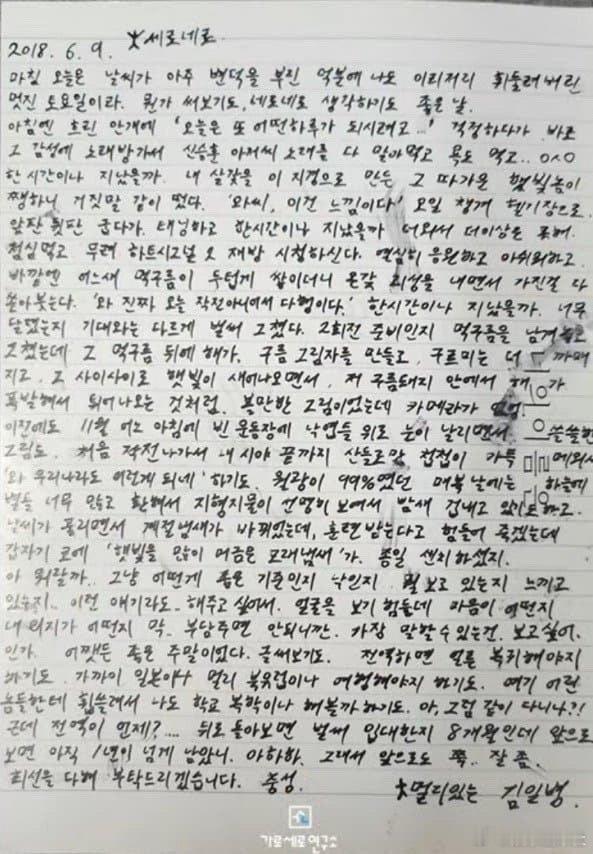 2018. 6. 9. 大세로네로
마침 오늘은 날씨가 아주 변덕을 부린 덕분에 나도 이리저리 휘둘려버린
멋진 토요일이라. 뭔가 써보기도, 세로네로 생각하기도 좋은 날.
아침엔 흐린 안개에 '오늘은 또 어떤하루가 되시려고...' 걱정하다가 바로
그 감성에 노래방가서 신승훈 아저씨 노래를 다 말아먹고 욕도 먹고.. ㅇㅅㅇ
한시간이나 지났을까. 내 살갗을 이 지경으로 만든 그 따가운 햇빛놈이
쨍하니 거짓말 같이 떴다. '와씨, 이건 느낌이다' 요일 챙겨 헬기장으로.
앞판 뒷판 굽다가. 태닝하고 한시간이나 지났을까 더와서 더이상은 못해.
점심먹고 무려 하트시그널 2 재방 시청하신다. 열심히 응원하고 아쉬워하고.
바깥엔 어느새 먹구름이 두텁게 쌓이더니 온갖 괴성을 내면서 가진걸 다
쏟아붓는다. '와 진짜 오늘 작전아니여서 다행이다.' 한시간이나 지났을까. 너무
달랬는지 기대와는 다르게 벌써 그쳤다. 2회전 준비인지 먹구름을 남겨놓고
그쳤는데 그 먹구름 뒤에 해가. 구름 그림자를 만들고, 구르미는 더 까매
지고, 그 사이사이로 햇빛이 새어나오면서, 저 구름돼지 안에서 해가
폭발해서 튀어나오는 것처럼. 볼만한 그림이었는데 카메라가
이전에도 11월 어느 아침에 빈 운동장에 낙엽들 위로 눈이 날리면서 쓸쓸한
그림도. 처음 작전나가서 내 시야 끝까지 산들로만 첩첩이 가득 메워서
'와 우리나라도 이렇게 되네' 하기도. 월광이 99%였던 매복날에는 하늘에
별들 너무 많고 환해서 지형지물이 선명히 보여서 밤새 겁내고 있기도하고.
날씨가 풀리면서 계절냄새가 바뀌었는데, 훈련받는다고 힘들어 죽겠는데
갑자기 코에 '햇빛을 많이 머금은 모래냄새'가. 종일 센치하셨지.
아 뭐랄까.. 그냥 어떻게 좁은 기준인지 낙인지 뭘 보고 있는지 느끼고
있는지.. 이런 얘기라도.. 해주고 싶어서. 얼굴을 보기 힘든데 마음이 어떤지
내 의지가 어떤지 막.. 부담주면 안되니깐. 가장 말할수 있는건. 보고싶어.
인가. 어쨌든 좋은 주말이었다. 글써보기도. 전역하면 얼른 복귀해야지
하기도. 가까이 일본이나 멀리 북유럽이나 여행해야지 하기도. 여기 어린
놈들한테 휩쓸려서 나도 학교 복학이나 해볼까 하기도. 아, 그럼 같이 다니나?!
근데 전역이 언제?.... 뒤로 돌아보면 벌써 입대한지 8개월인데 앞으로
보면 아직 1년이 넘게 남았니. 아하하. 그래서 앞으로도 쭉.. 잘 좀.
최선을 다해 부탁드리겠습니다. 충성.
大멀리있는 김일병.
가로세로연구소